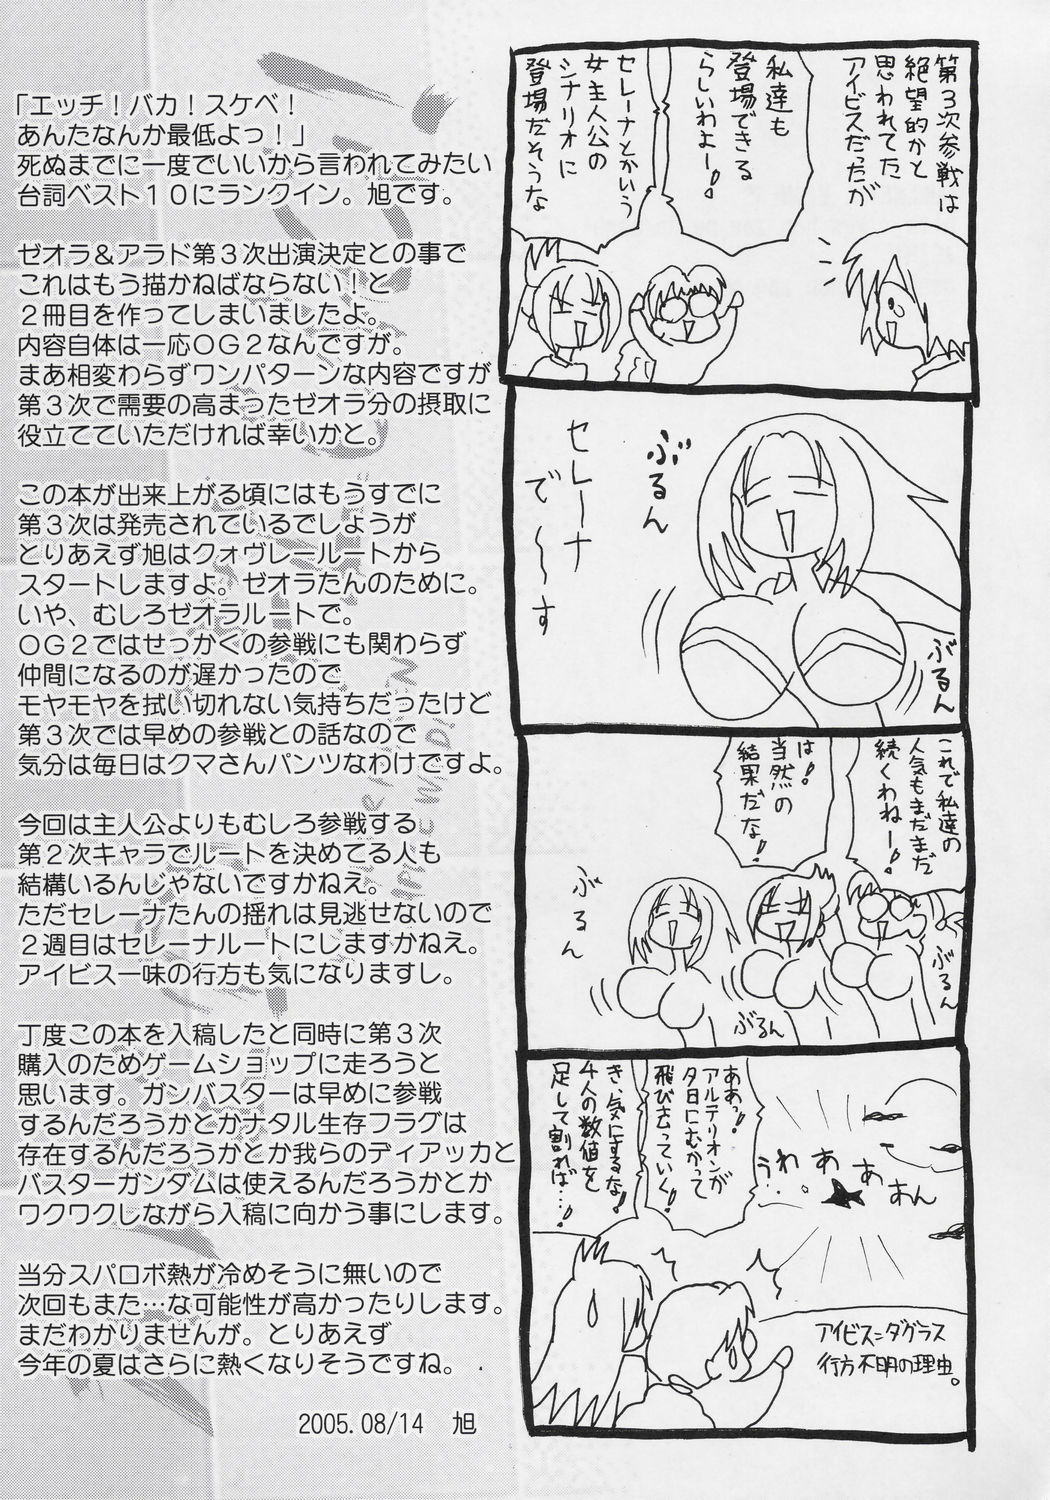 「エッチ！バカ！スケベ！
あんたなんか最低よっ！」
死ぬまでに一度でいいから言われてみたい
台詞ベスト１０にランクイン。旭です。
ゼオラ＆アラド第３次出演決定との事で
これはもう描かねばならない！と
２冊目を作ってしまいましたよ。
内容自体は一応ＯＧ２なんですが。
まあ相変わらずワンパターンな内容ですが
第３次で需要の高まったゼオラ分の摂取に
役立てていただければ幸いかと。
この本が出来上がる頃にはもうすでに
第３次は発売されているでしょうが
とりあえず旭はクォヴレールートから
スタートしますよ。ゼオラたんのために。
いや、むしろゼオラルートで。
ＯＧ２ではせっかくの参戦にも関わらず
仲間になるのが遅かったので
モヤモヤを拭い切れない気持ちだったけど
第３次では早めの参戦との話なので
気分は毎日はクマさんパンツなわけですよ。
今回は主人公よりもむしろ参戦する
第２次キャラでルートを決めてる人も
結構いるんじゃないですかねえ。
ただセレーナたんの揺れは見逃せないので
２週目はセレーナルートにしますかねえ。
アイビス一味の行方も気になりますし。
丁度この本を入稿したと同時に第３次
購入のためゲームショップに走ろうと
思います。ガンバスターは早めに参戦
するんだろうかとかナタル生存フラグは
存在するんだろうかとか我らのディアッカと
バスターガンダムは使えるんだろうかとか
ワクワクしながら入稿に向かう事にします。
当分スパロボ熱が冷めそうに無いので
次回もまた…な可能性が高かったりします。
まだわかりませんが。とりあえず
今年の夏はさらに熱くなりそうですね。
2005.08/14　旭
第３次参戦は
絶望的かと
思われてた
アイビスだったが
私達も
登場できる
らしいわよー！
セレーナとかいう
女主人公の
シナリオに
登場だそうな
ぶるん
セレーナ
で〜〜す
ぶるん
これで私達の
人気もまだまだ
続くわねー！
は！
当然の
結果だな！
ぶるん
ぶるん
ぶるん
うわ
ぁ
あ
あぁん
ああっ！
アルテリオンが
夕日にむかって
飛び去っていく！
き、気にするな！
４人の数値を
足して割れば…！
アイビス＝ダグラス
行方不明の理由。